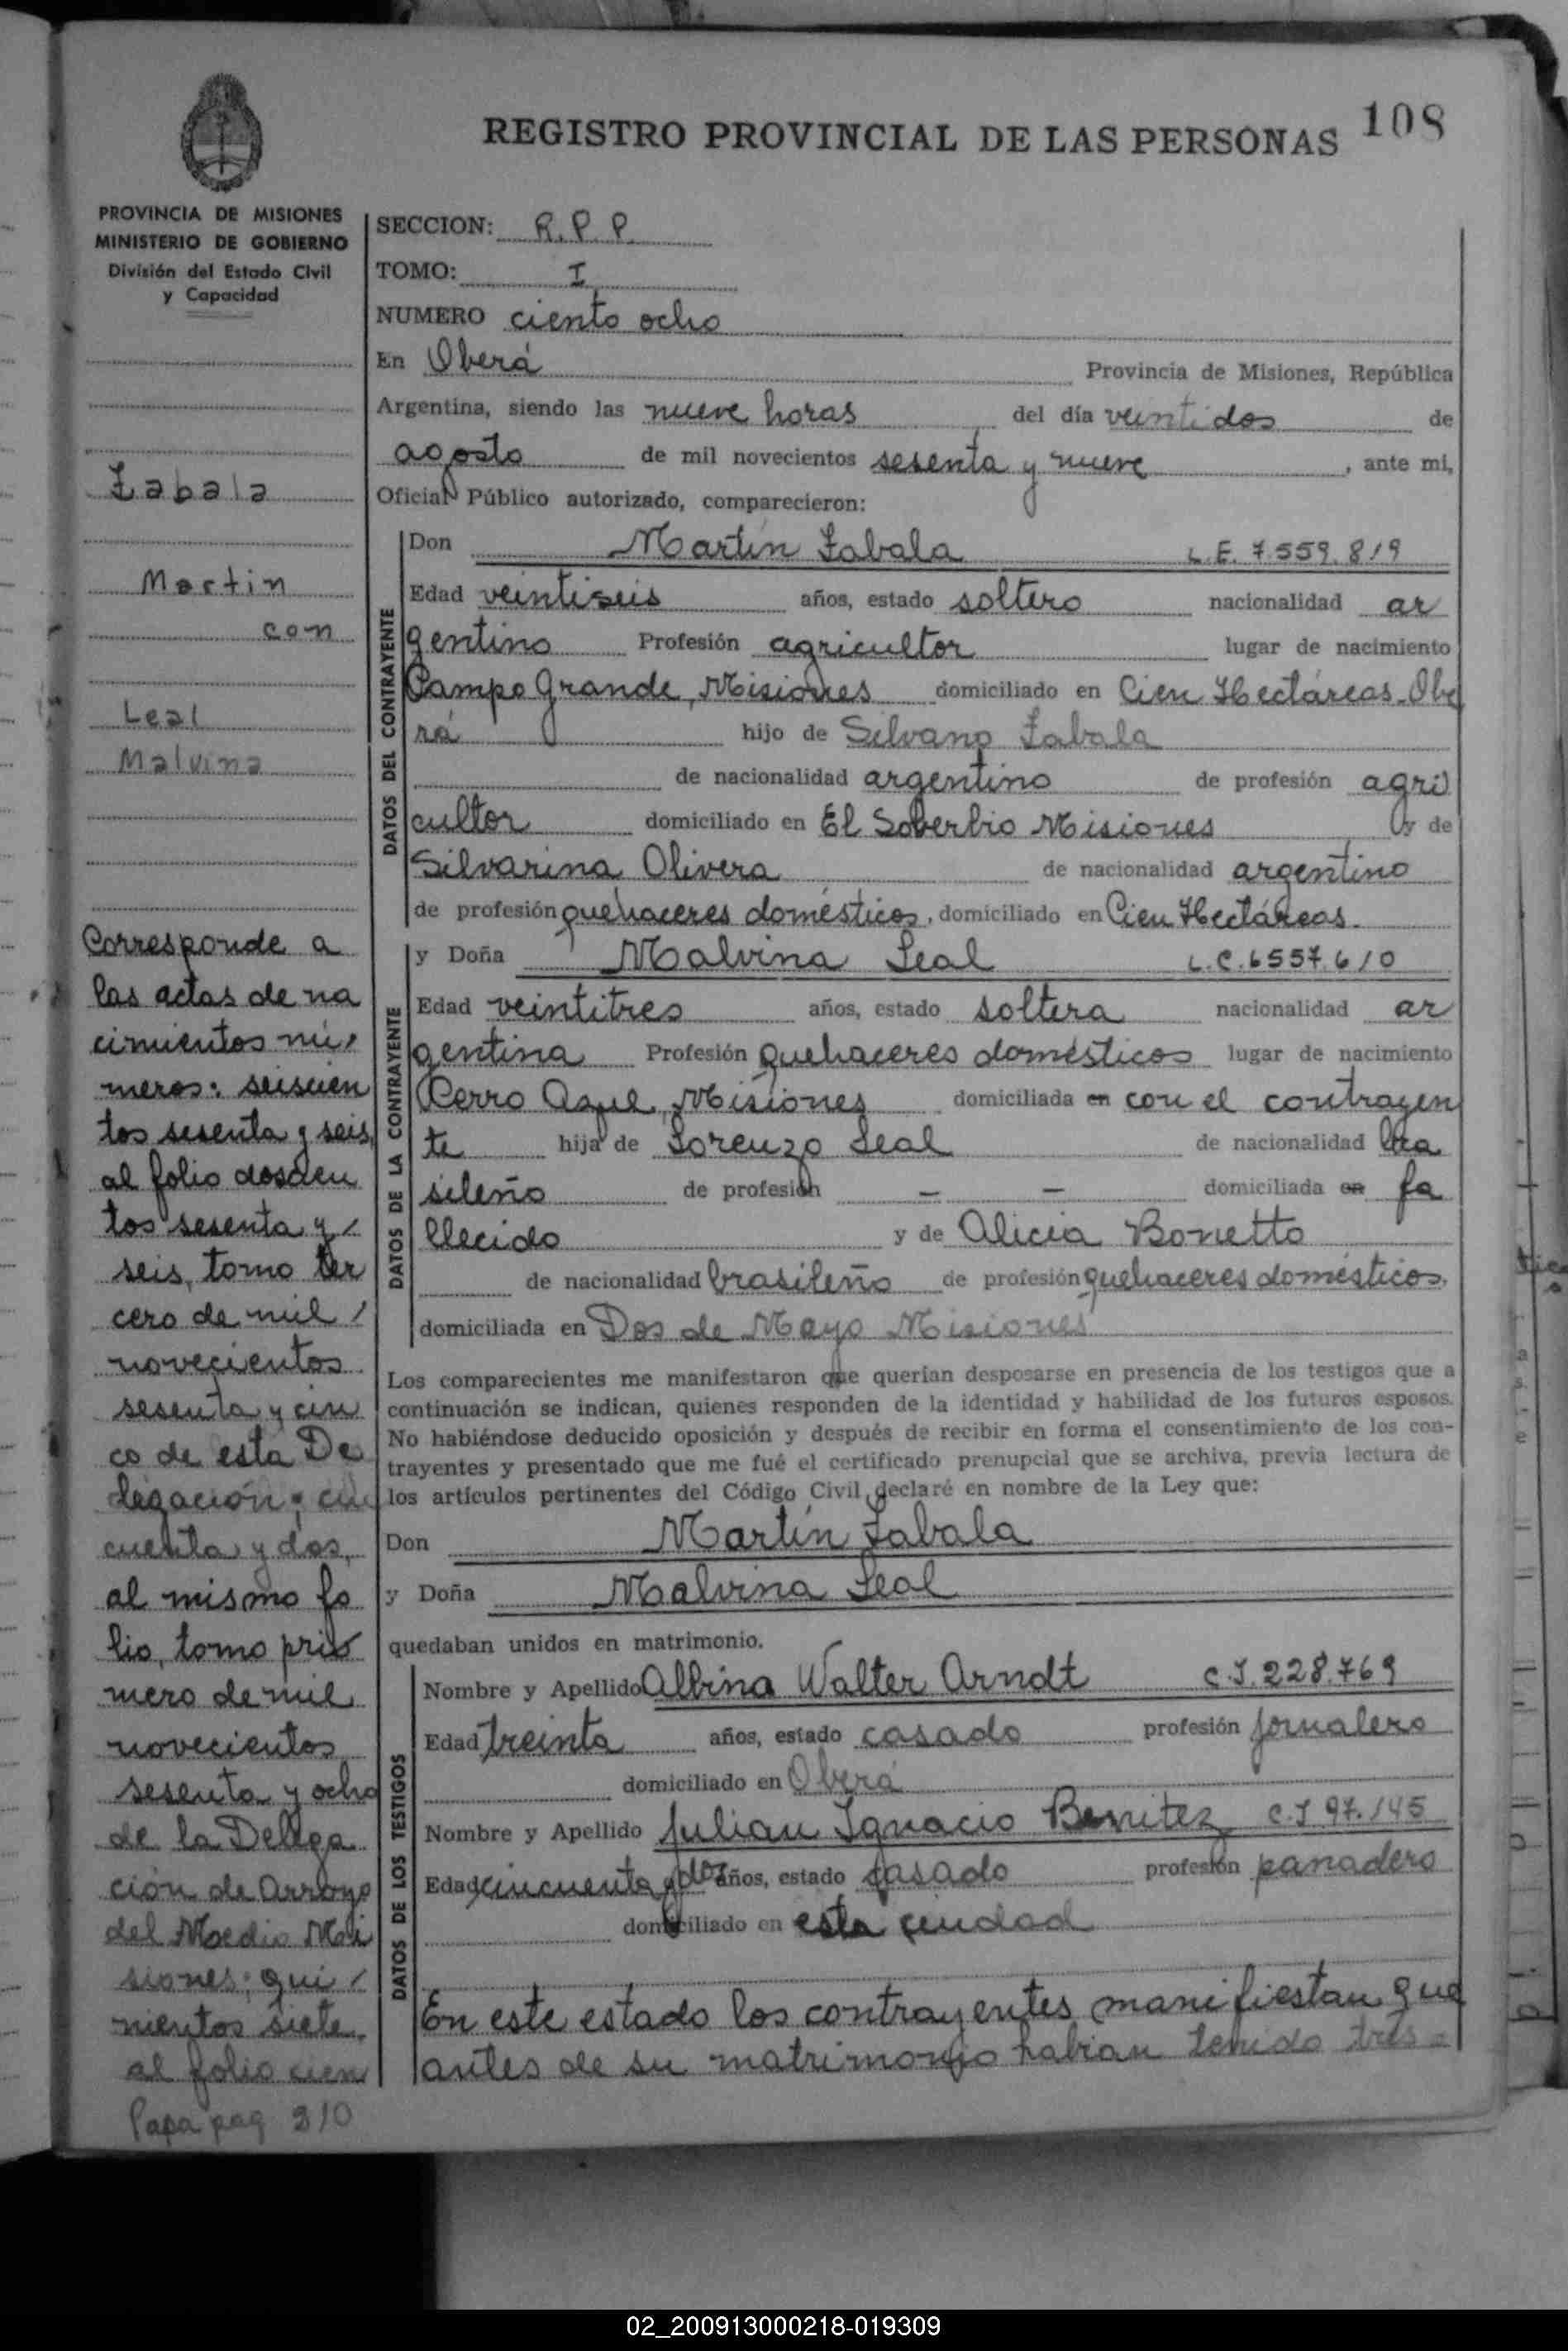 REGISTRO PROVINCIAL DE LAS PERSONAS 108
PROVINCIA DE MISIONES
MINISTERIO DE GOBIERNO
División del Estado Civil
y Capacidad
Zabala
Martin
con
Leal
Malvina
Corresponde a
las actas de na
cimientos nú,
meros: seiscien
tos sesenta y seis,
al folio doscien
tos sesenta y /
seis, tomo ter
cero de mil /
novecientos
sesenta y cin
co de esta De
legación; cin
cuenta y dos,
al mismo fo
lio, tomo pri
mero de mil
novecientos
sesenta y ocho
de la Delega
ción de Arroyo
del Medio Mi
siones; qui /
nientos siete,
al folio cien
Papa pag 310
SECCION: R.P.P.
TOMO: I
NUMERO ciento ocho
En Oberá Provincia de Misiones, República
Argentina, siendo las nueve horas del día veintidos de
agosto de mil novecientos sesenta y nueve, ante mi,
Oficial Público autorizado, comparecieron:
DATOS DEL CONTRAYENTE
Don Martín Zabala L.E. 7.559.819
Edad veintiseis años, estado soltero nacionalidad ar
gentino Profesión agricultor lugar de nacimiento
Campo Grande, Misiones domiciliado en Cien Hectáreas-Obe
rá hijo de Silvano Zabala
de nacionalidad argentino de profesión agri
cultor domiciliado en El Soberbio Misiones y de
Silvarina Olivera de nacionalidad argentino
de profesión quehaceres domésticos, domiciliado en Cien Hectáreas.
DATOS DE LA CONTRAYENTE
y Doña Malvina Leal L.C. 6557.610
Edad veintitres años, estado soltera nacionalidad ar
gentina Profesión quehaceres domésticos lugar de nacimiento
Cerro Azul, Misiones domiciliada en con el contrayen
te hija de Lorenzo Leal de nacionalidad bra
sileño de profesión — — domiciliada en fa
llecido y de Alicia Bonetto
de nacionalidad brasileño de profesión quehaceres domésticos,
domiciliada en Dos de Mayo Misiones
Los comparecientes me manifestaron que querían desposarse en presencia de los testigos que a
continuación se indican, quienes responden de la identidad y habilidad de los futuros esposos.
No habiéndose deducido oposición y después de recibir en forma el consentimiento de los con-
trayentes y presentado que me fué el certificado prenupcial que se archiva, previa lectura de
los artículos pertinentes del Código Civil, declaré en nombre de la Ley que:
Don Martín Zabala
y Doña Malvina Leal
quedaban unidos en matrimonio.
DATOS DE LOS TESTIGOS
Nombre y Apellido Albina Walter Arndt C.I. 228.769
Edad treinta años, estado casado profesión jornalero
domiciliado en Oberá
Nombre y Apellido Julian Ignacio Benitez C.I 97.145
Edad cincuenta y dos años, estado casado profesión panadero
domiciliado en esta ciudad
En este estado los contrayentes manifiestan que
antes de su matrimonio habian tenido tres
02_200913000218-019309